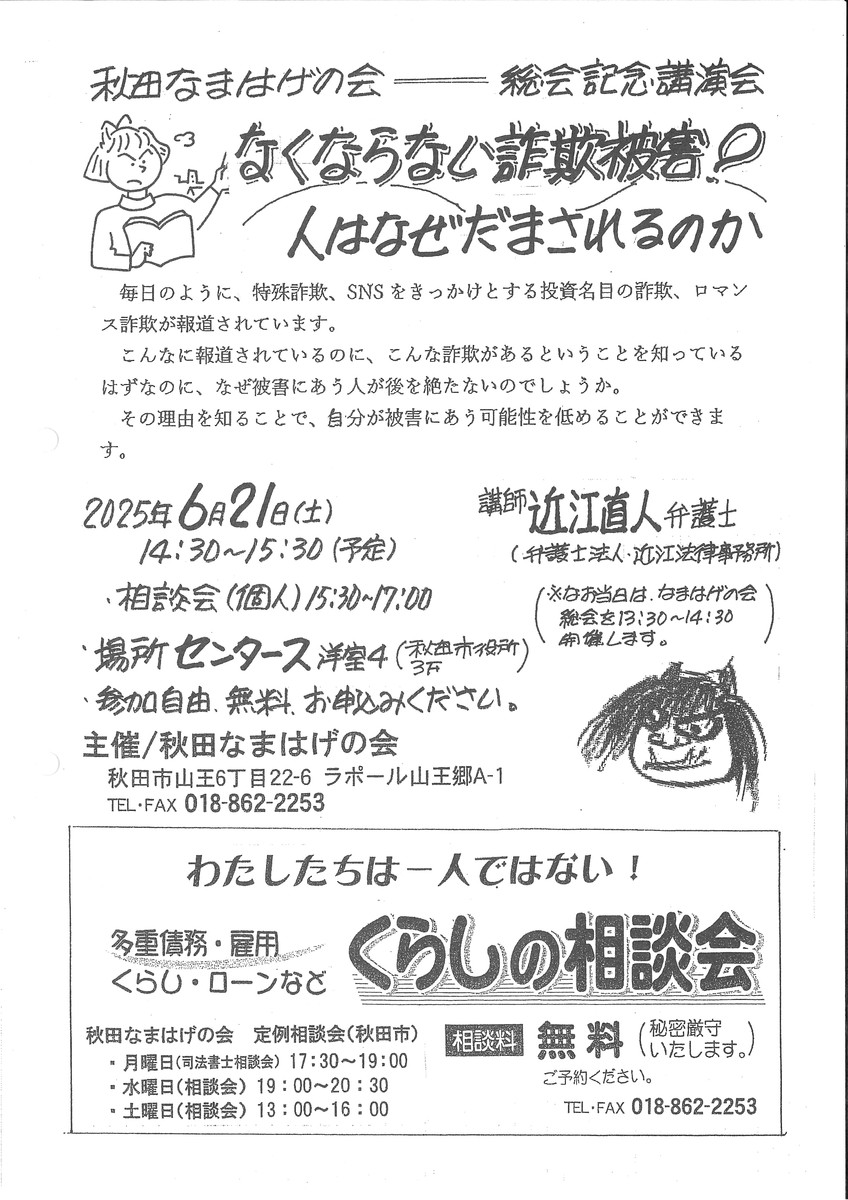 秋田なまはげの会 ―― 総会記念講演会
なくならない詐欺被害?
人はなぜだまされるのか
毎日のように、特殊詐欺、SNSをきっかけとする投資名目の詐欺、ロマン
ス詐欺が報道されています。
こんなに報道されているのに、こんな詐欺があるということを知っている
はずなのに、なぜ被害にあう人が後を絶たないのでしょうか。
その理由を知ることで、自分が被害にあう可能性を低めることができま
す。
2025年6月21日(土)
14:30〜15:30(予定)
・相談会(個人)15:30〜17:00
講師 近江直人弁護士
(弁護士法人・近江法律事務所)
(※なお当日は、なまはげの会
総会を13:30〜14:30
開催します。)
・場所 センタース 洋室4(秋田市役所3F)
・参加自由、無料、お申込みください。
主催/秋田なまはげの会
秋田市山王6丁目22-6 ラポール山王郷A-1
TEL・FAX 018-862-2253
わたしたちは一人ではない!
多重債務・雇用
くらし・ローンなど
くらしの相談会
秋田なまはげの会 定例相談会(秋田市)
・月曜日(司法書士相談会) 17:30〜19:00
・水曜日(相談会) 19:00〜20:30
・土曜日(相談会) 13:00〜16:00
相談料 無料(秘密厳守
いたします。)
ご予約ください。
TEL・FAX 018-862-2253